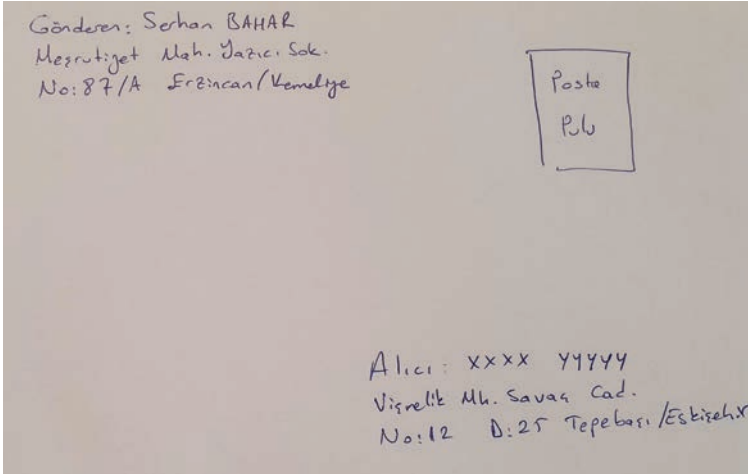 Gönderen: Serhan BAHAR
Meşrutiyet Mah. Yazıcı Sok.
No: 87/A Erzincan/Kemaliye
Posta
Pulu
Alıcı: XXXX YYYYY
Vişnelik Mh. Savaş Cad.
No: 12 D: 25 Tepebaşı/Eskişehir